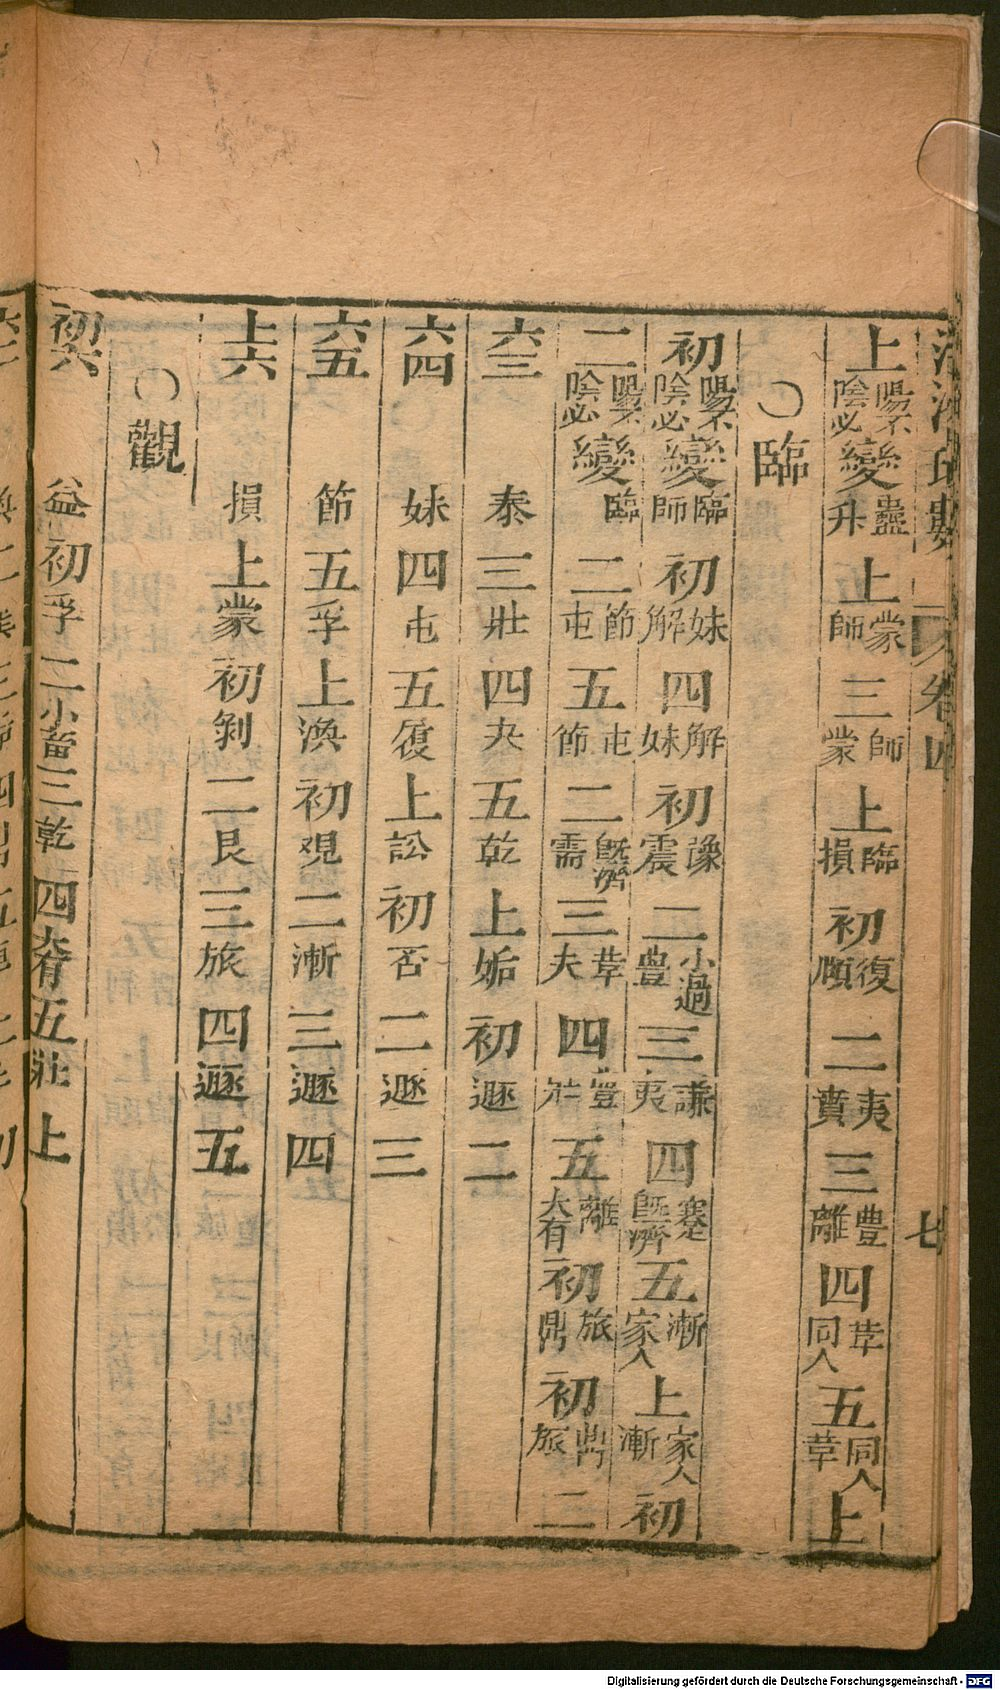 數 卷四 七
上陽不陰必變蠱升上蒙師三師蒙上臨損初復頤二夷賁三豐離四革同人五同人革上
〇臨
初陽不陰必變臨師初妹解四解妹初豫震二小過豐三謙夷四蹇既濟五漸家人上家人漸初
二陽不陰必變臨二節屯五屯節二既濟需三革夬四豐壯五離大有初旅鼎初鼎旅二
六三 泰三壯四夬五乾上姤初遯二
六四 妹四屯五復上訟初否二遯三
六五 節五孚上渙初觀二漸三遯四
上六 損上蒙初剝二艮三旅四遯五
〇觀
初六 益初孚二小畜三乾四大有五壯上
Digitalisierung gefördert durch die Deutsche Forschungsgemeinschaft - DFG